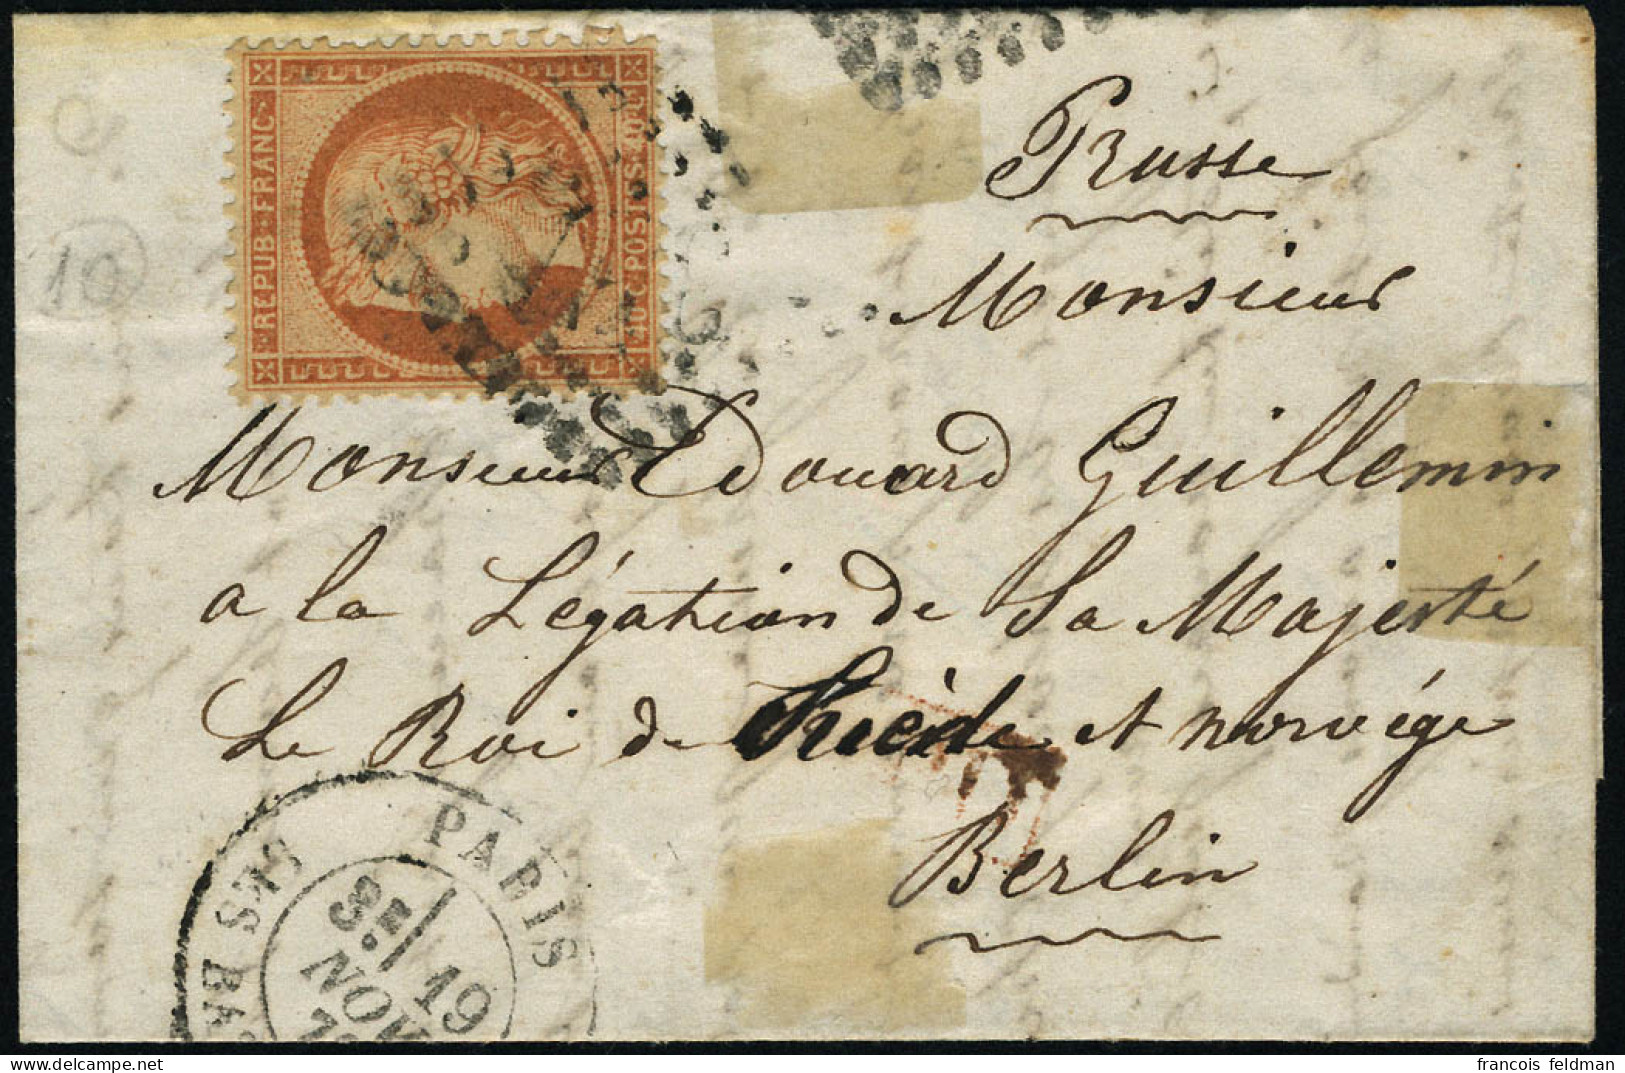 REPUB·FRANC·
40·C·POSTES·40·C·
10
Prusse
Monsieur
Monsieur Edouard Guillemin
a la Légation de Sa Majesté
Le Roi de Suède et norvége
Berlin
PARIS
3E
19
NOV.
francois feldman